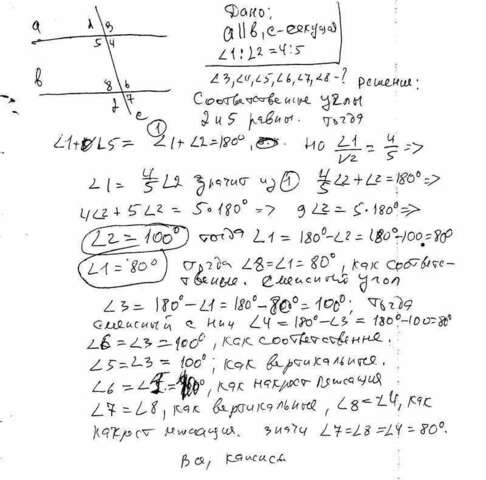 Дано:
a || b, c - секущая
∠1:∠2 = 4:5
∠3,∠4,∠5,∠6,∠7,∠8 - ?
a
1 3
5 4
b
8 6
2 7
c
Решение:
Соответственные углы
2 и 5 равны. тогда
∠1+∠5 = ∠1+∠2=180°, но ∠1/∠2 = 4/5 =>
1
∠1 = 4/5 ∠2 значит из 1 4/5 ∠2 + ∠2 = 180° =>
4∠2 + 5∠2 = 5·180° => 9∠2 = 5·180° =>
∠2 = 100° тогда ∠1 = 180°-∠2 = 180°-100=80
∠1 = 80° тогда ∠8=∠1 = 80°, как соответс-
твенные. смежный угол
∠3 = 180°-∠1 = 180°-80° = 100°; тогда
смежный с ним ∠4 = 180°-∠3 = 180°-100=80°
∠6 = ∠3 = 100°, как соответственные.
∠5 = ∠3 = 100°; как вертикальные.
∠6 = как накрест лежащие
∠7 = ∠8, как вертикальные, ∠8 = ∠4, как
накрест лежащие. значит ∠7 = ∠8 = ∠4 = 80°.